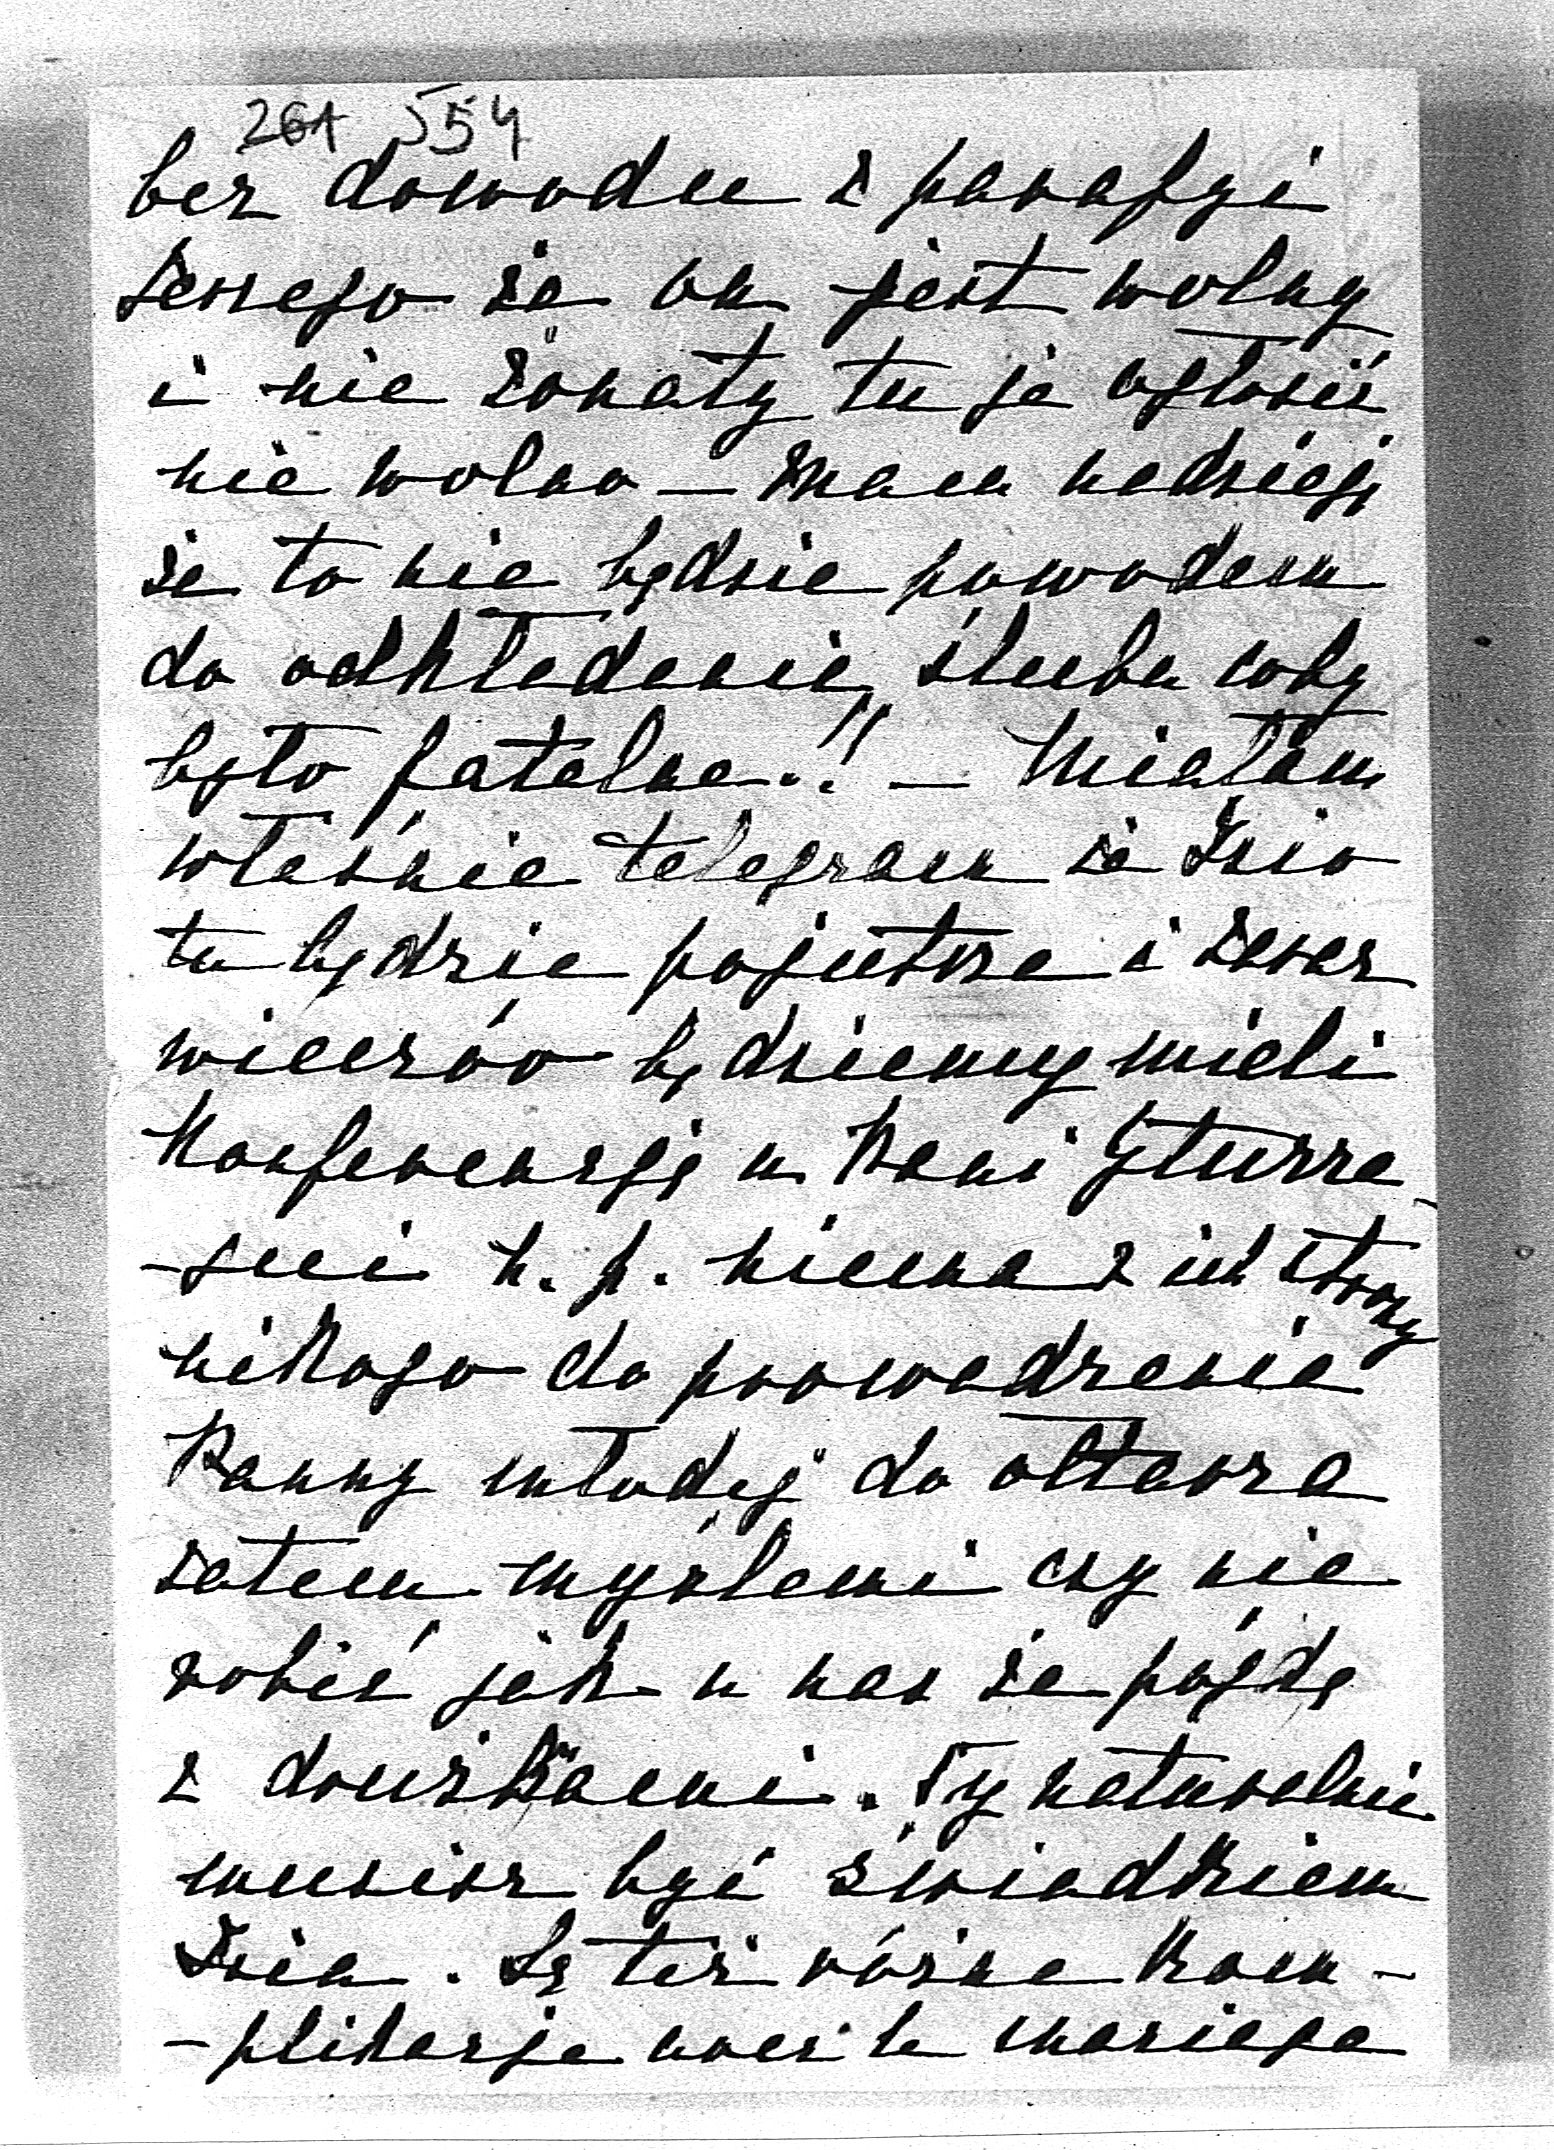 261 554
bez dowodu z parafyi
że on jest wolny
i nie żonaty tu je ogłosić
nie wolno — mam nadzieję
że to nie będzie powodem
do odkładania ślubu coby
było fatalne.!! — Miałam
właśnie telegram że Izio
tu będzie pojutrze i zaraz
wieczór będziemy mieli
Konferencyję u Pani
n. p. niema z ich strony
nikogo do prowadzenia
Panny młodej do ołtarza
zatem myślemi czy nie
robić jak u nas że pójdę
z drużkami. Ty naturalnie
musisz być świadkiem
Izia. Są też różne Kom-
-plikacje avec le mariage